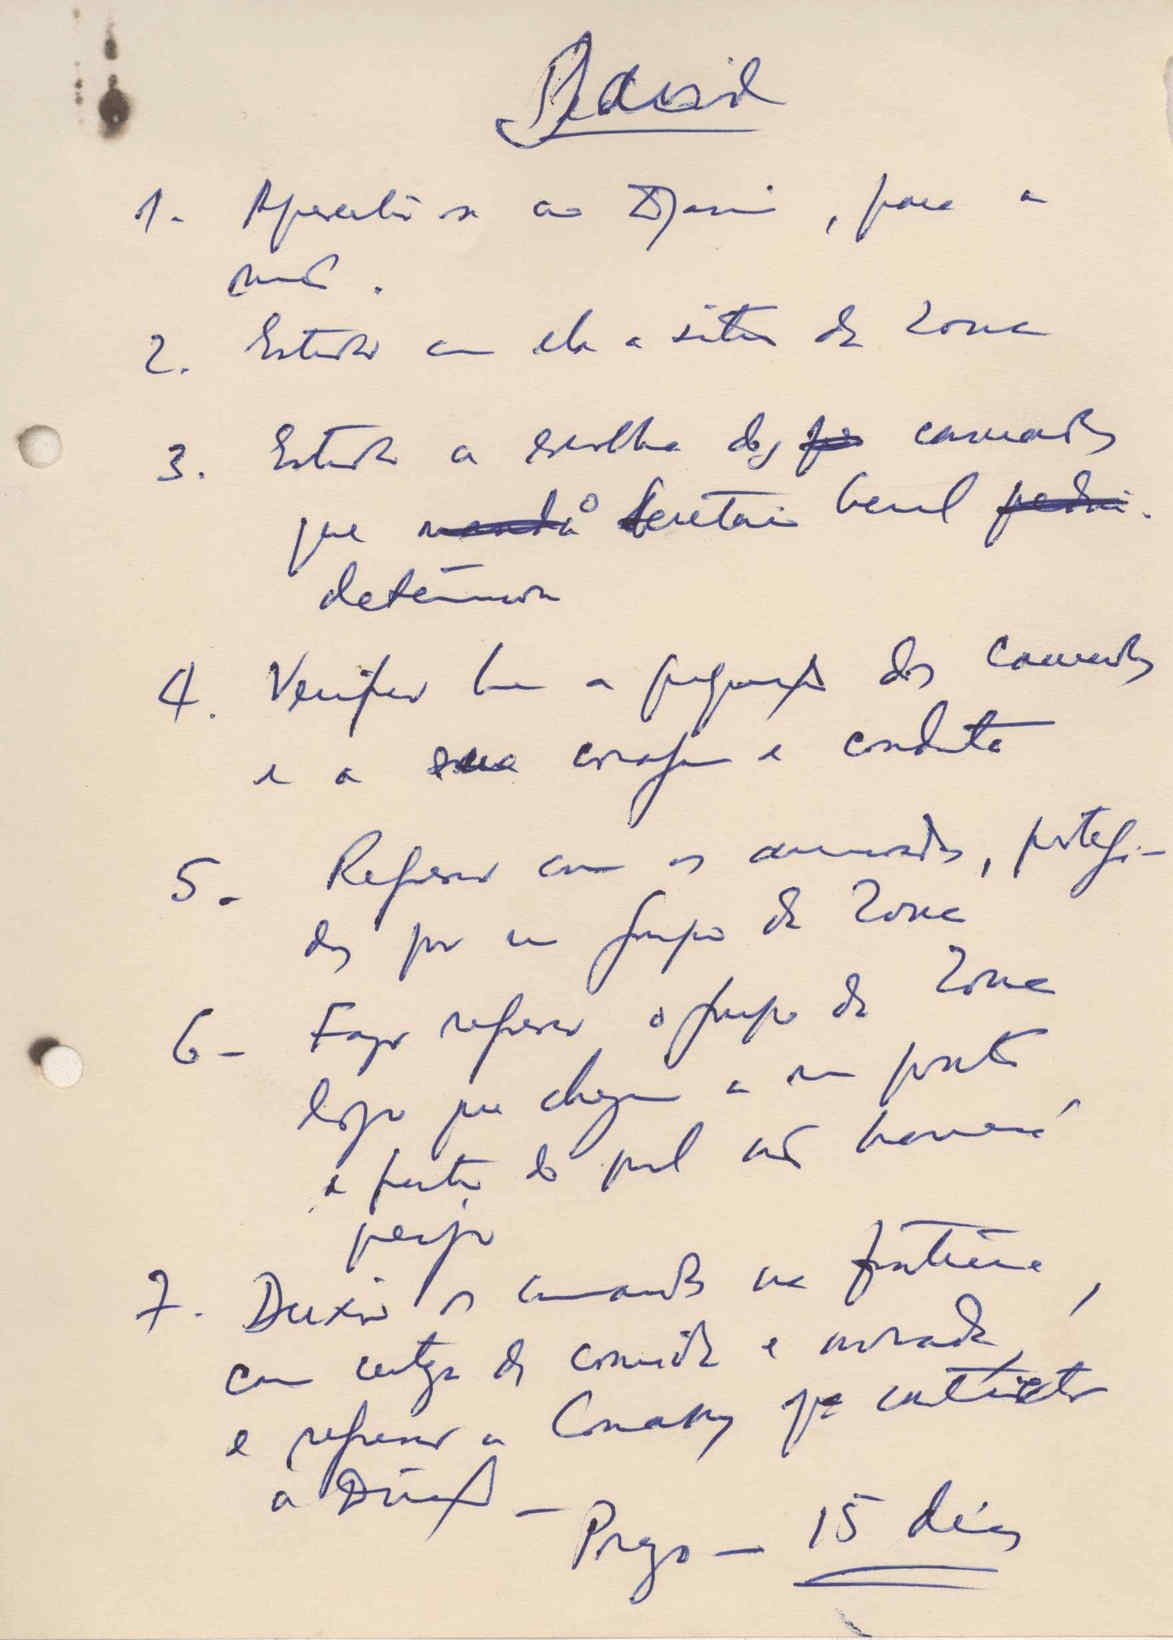 1- Apresentar-se ao Djassi, para a
missão.
2. Estudar com ele a situação da zona
3. Estudar a escolha dos camaradas
que o Secretário Geral
determinou
4. Verificar bem a preparação dos camaradas
e a sua coragem e conduta
5- Regressar com os camaradas, protegi-
dos por um grupo da zona
6- Fazer regressar o grupo da zona
logo que cheguem a um ponto
a partir do qual não haverá
perigo
7. Deixar os camaradas na fronteira,
com certeza de comida e morada,
e regressar a Conakry para contactar
a Direcção -
Prazo - 15 dias